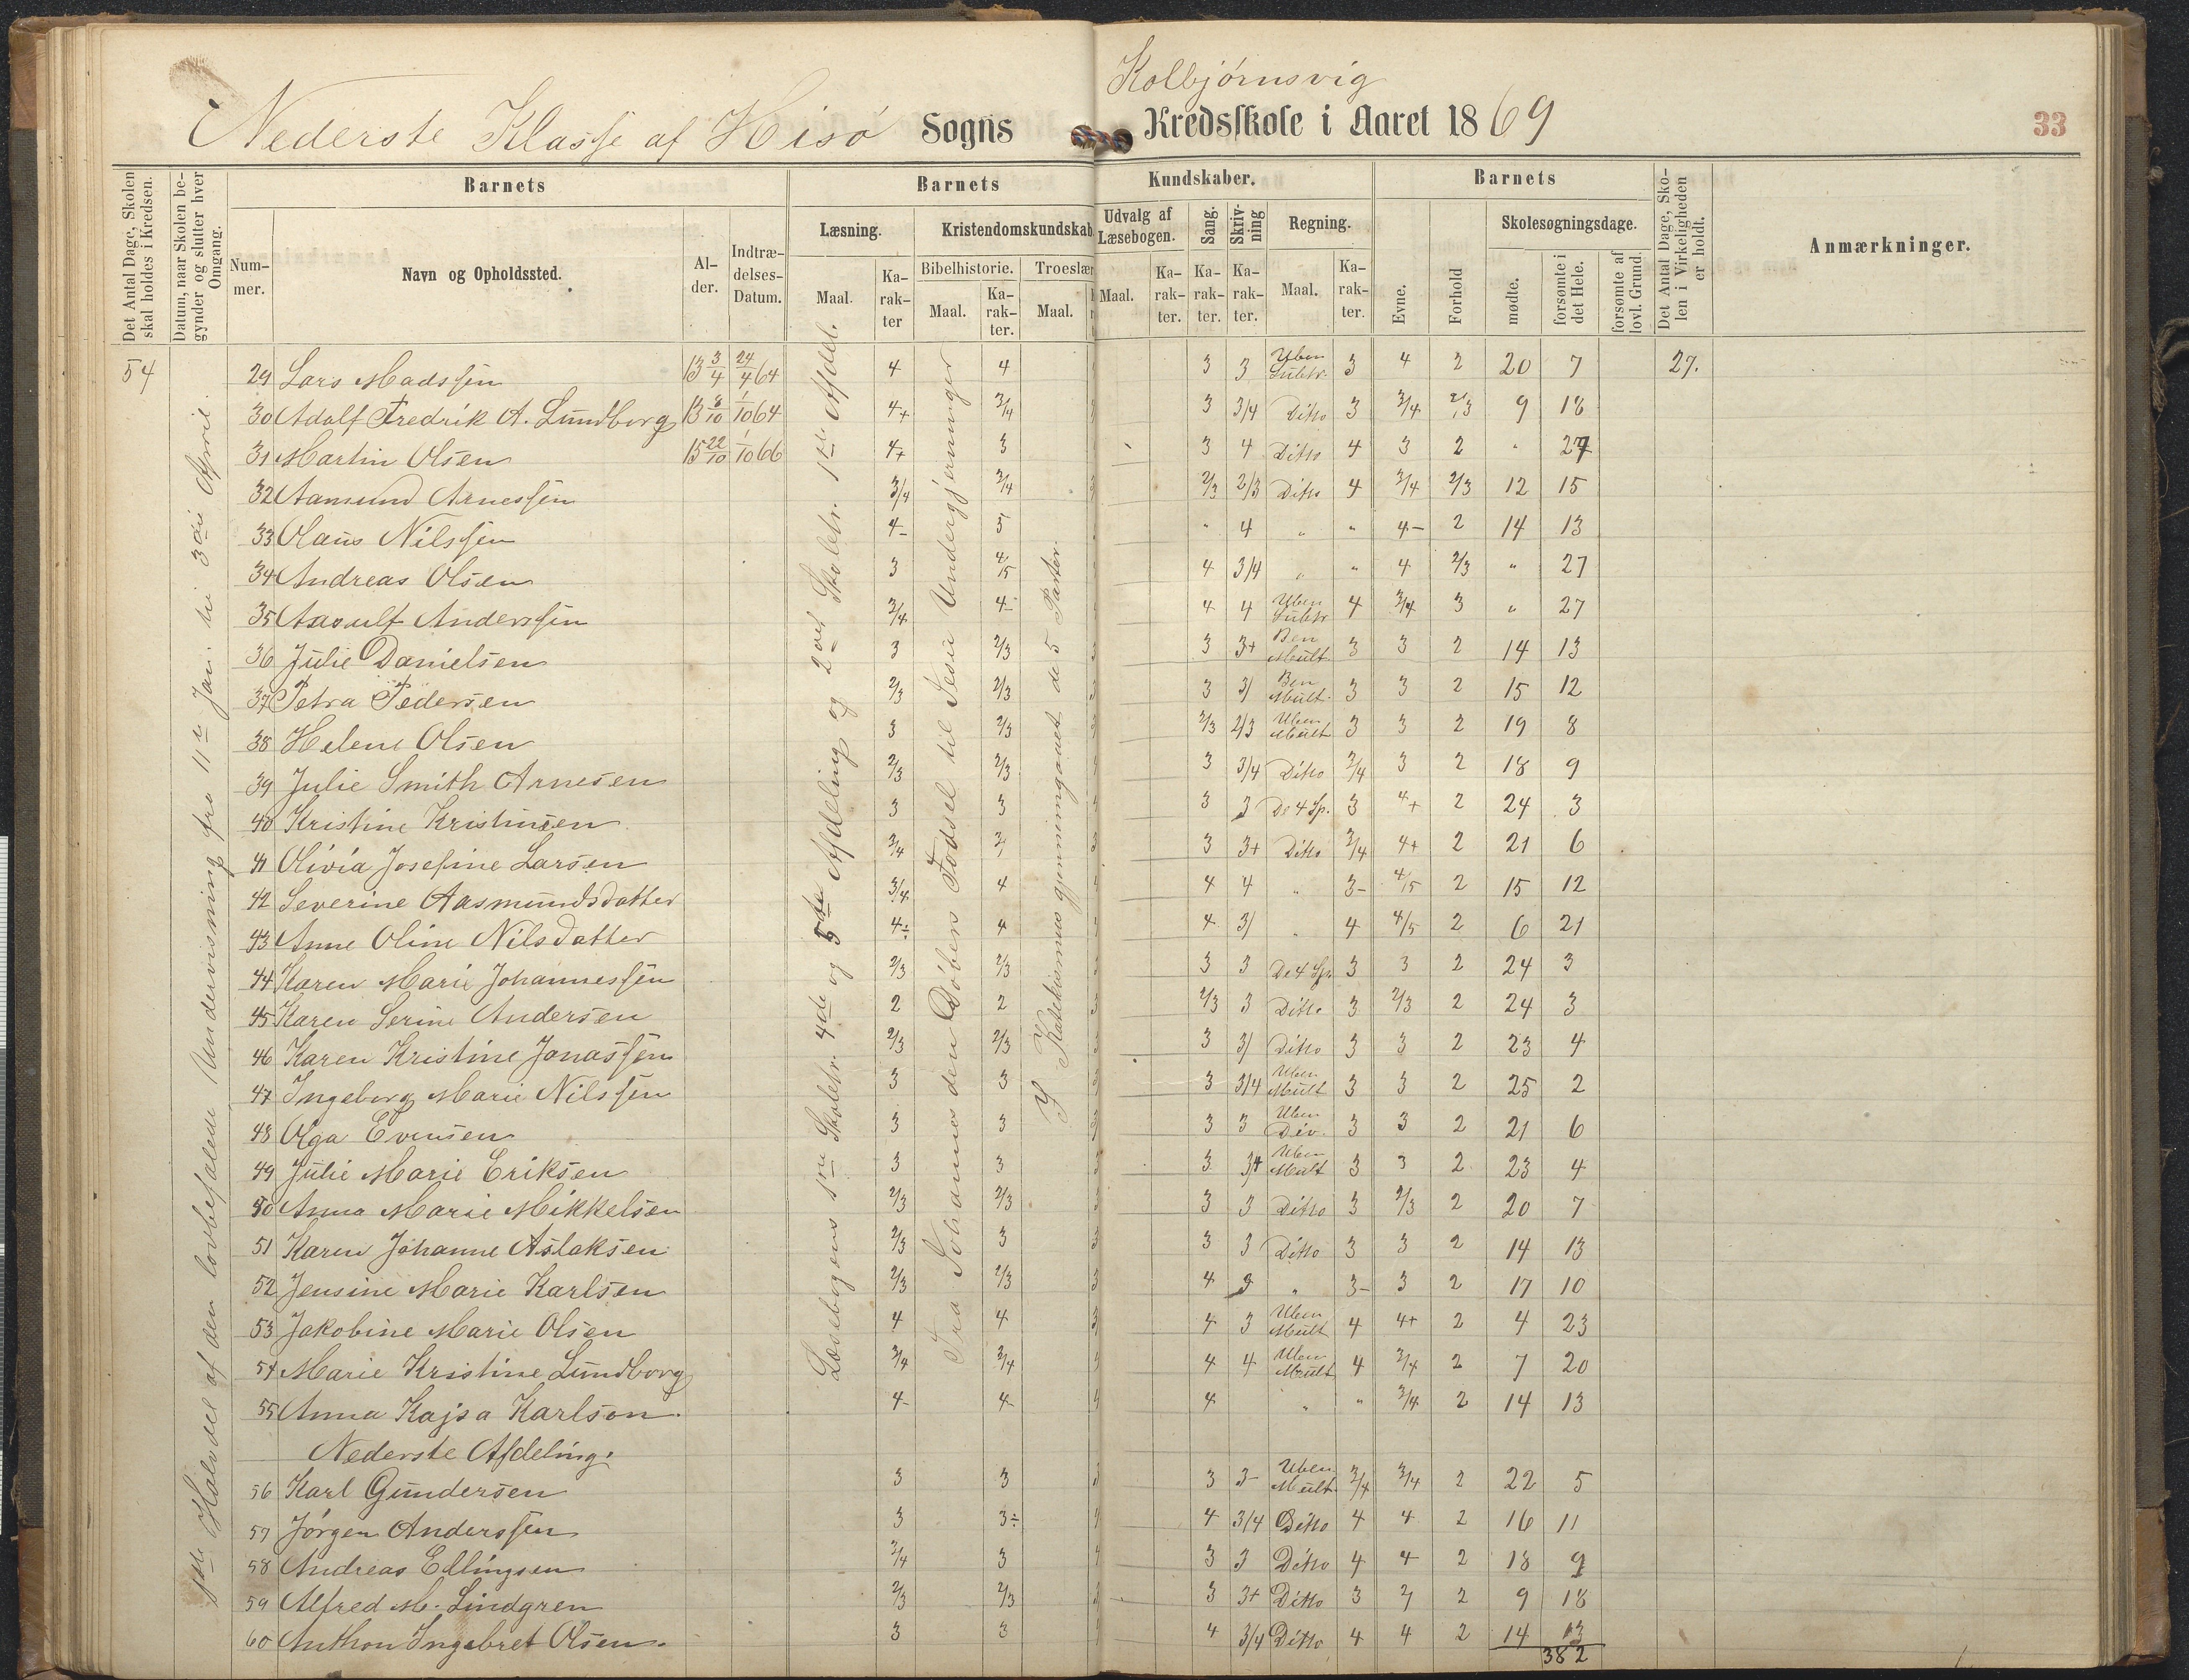 Kolbjørnsvig
Nederste Klasse af Hisø Sogns Kredsskole i Aaret 1869
33
Det Antal Dage, Skolen skal holdes i Kredsen.
Datum, naar Skolen begynder og slutter hver Omgang.
Barnets
Barnets
Kundskaber.
Barnets
Det Antal Dage, Skolen i Virkeligheden er holdt.
Anmærkninger.
Nummer.
Navn og Opholdssted.
Alder.
Indtrædelses-Datum.
Læsning.
Kristendomskundskab
Udvalg af Læsebogen.
Sang.
Skrivning
Regning.
Evne.
Forhold
Skolesøgningsdage.
Maal.
Karakter
Bibelhistorie.
Troeslær
Maal.
Karakter.
Maal.
Maal.
Karakter.
Karakter.
Karakter.
Maal.
Karakter.
mødte.
forsømte i det Hele.
forsømte af lovl. Grund.
54
1ste Halvdel af den lovbefalede Undervisning fra 11te Jan. til 3die April.
Læsebogens 1ste Skoletr. 4de og 5te Afdeling og 2det Skoletr. 1ste Afdel.
Fra Johannes den Døbers Fødsel til Jesu Undergjerninger
I Katekismus gjennemgaaet de 5 Parter.
29 Lars Madssen 13 3/4 24/4 64 4 4 3 3 Uben Subtr. 3 4 2 20 7 27.
30 Adolf Fredrik A. Lundborg 13 8/10 1/10 64 4+ 3/4 3 3/4 Ditto 3 3/4 2/3 9 18
31 Martin Olsen 15 22/10 1/10 66 4+ 3 3 4 Ditto 4 3 2 " 27
32 Aamund Arnessen 3/4 3/4 2/3 2/3 Ditto 4 3/4 2/3 12 15
33 Olaus Nilssen 4- 3 " 4 " " 4- 2 14 13
34 Andreas Olsen 3 4/5 4 3/4 " " 4 2/3 " 27
35 Aasulf Anderssen 3/4 4- 4 4 Uben Subtr 4 3/4 3 " 27
36 Julie Danielsen 3 2/3 3 3+ Ben Mult 3 3 2 14 13
37 Petra Pedersen 2/3 2/3 3 3/ Ben Mult. 3 3 2 15 12
38 Helene Olsen 3 2/3 2/3 2/3 Uben Mult 3 3 2 19 8
39 Julie Smith Arnesen 2/3 2/3 3 3/4 Ditto 3/4 3 2 18 9
40 Kristine Kristinsen 3 3 3 3 De 4 Sp. 3 4+ 2 24 3
41 Olivia Josefine Larsen 3/4 3/ 3 3+ Ditto 3/4 4+ 2 21 6
42 Severine Aasmundsdatter 3/4 4 4 4 " 3- 4/5 2 15 12
43 Anne Oline Nilsdatter 4÷ 4 4 3/ " 4 4/5 2 6 21
44 Karen Marie Johannessen 2/3 2/3 3 3 De 4 Sp. 3 3 2 24 3
45 Karen Serine Andersen 2 2 2/3 3 Ditto 3 2/3 2 24 3
46 Karen Kristine Jonassen 2/3 2/3 3 3/ Ditto 3 3 2 23 4
47 Ingeborg Marie Nilssen 3 3 3 3/4 Uben Mult 3 3 2 25 2
48 Olga Evensen 3 3 3 3 Uben Div. 3 3 2 21 6
49 Julie Marie Eriksen 3 3 3 3+ Uben Mult 3 3 2 23 4
50 Anna Marie Mikkelsen 2/3 2/3 3 3 Ditto 3 2/3 2 20 7
51 Karen Johanne Aslaksen 2/3 3 3 3 Ditto 3 3 2 14 13
52 Jensine Marie Karlsen 2/3 2/3 4 3 " 3- 3 2 17 10
53 Jakobine Marie Olsen 4 4 4 3 Uben Mult 4 4+ 2 4 23
54 Marie Kristine Lundborg 3/4 3/4 4 4 Uben Mult 4 3/4 2 7 20
55 Anna Kajsa Karlson. 4- 4- 4 " " 3/4 2 14 13
Nederste Afdeling.
56 Karl Gundersen 3 3 3 3- Uben Mult. 3/4 3/4 2 22 5
57 Jørgen Anderssen 3 3÷ 4 3/4 Ditto 4 4 2 16 11
58 Andreas Ellingsen 3/4 3 3 3 Ditto 4 4 2 18 9
59 Alfred M. Lindgren 2/3 2/3 3 3+ Ditto 3 3/ 2 9 18
60 Anthon Ingebret Olsen. 3 3 4 3/4 Ditto 4 4 2 14 13
382